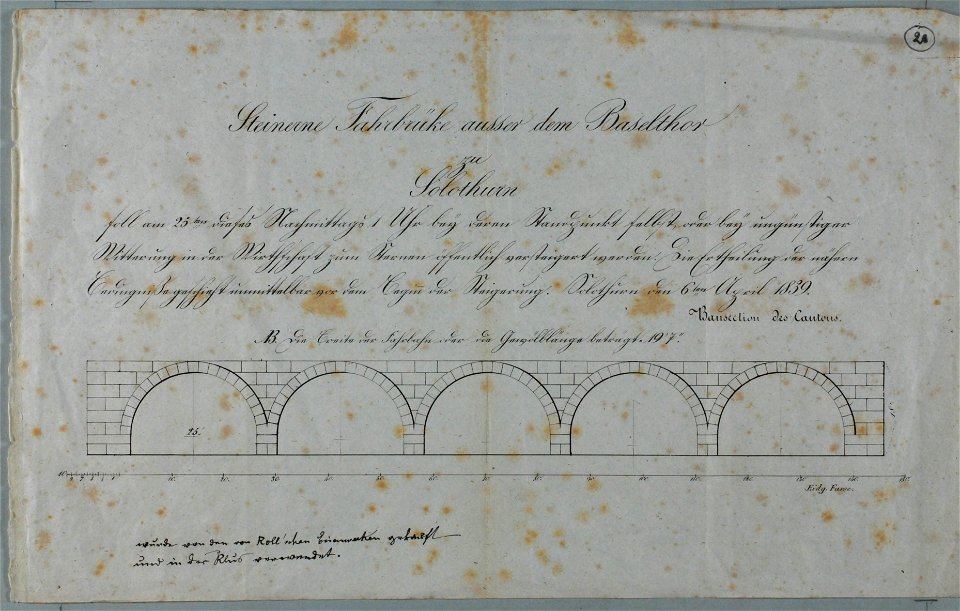 2A
Steinerne Fahrbrüke ausser dem Baselthor
zu
Solothurn
soll am 25ten dieses Nachmittags 1 Uhr bey deren Standpunkt selbst, oder bey ungünstiger
Witterung in der Wirthschaft zum Sternen öffentlich versteigert werden. Die Ertheilung der nähern
Bedingnisse geschieht unmittelbar vor dem Beginn der Steigerung. Solothurn den 6ten April 1839.
Bausection des Cantons.
NB. Die Breite der Fahrbahn oder die Gewölblänge beträgt 19'7."
25.
10 5 10. 20. 30 40. 50. 60. 70. 80. 90. 100. 110. 120. 130. 140. 150.
Eidg. Fusse.
wurde von den von Roll'schen Eisenwerken gekauft
und in der Klus verwendet.